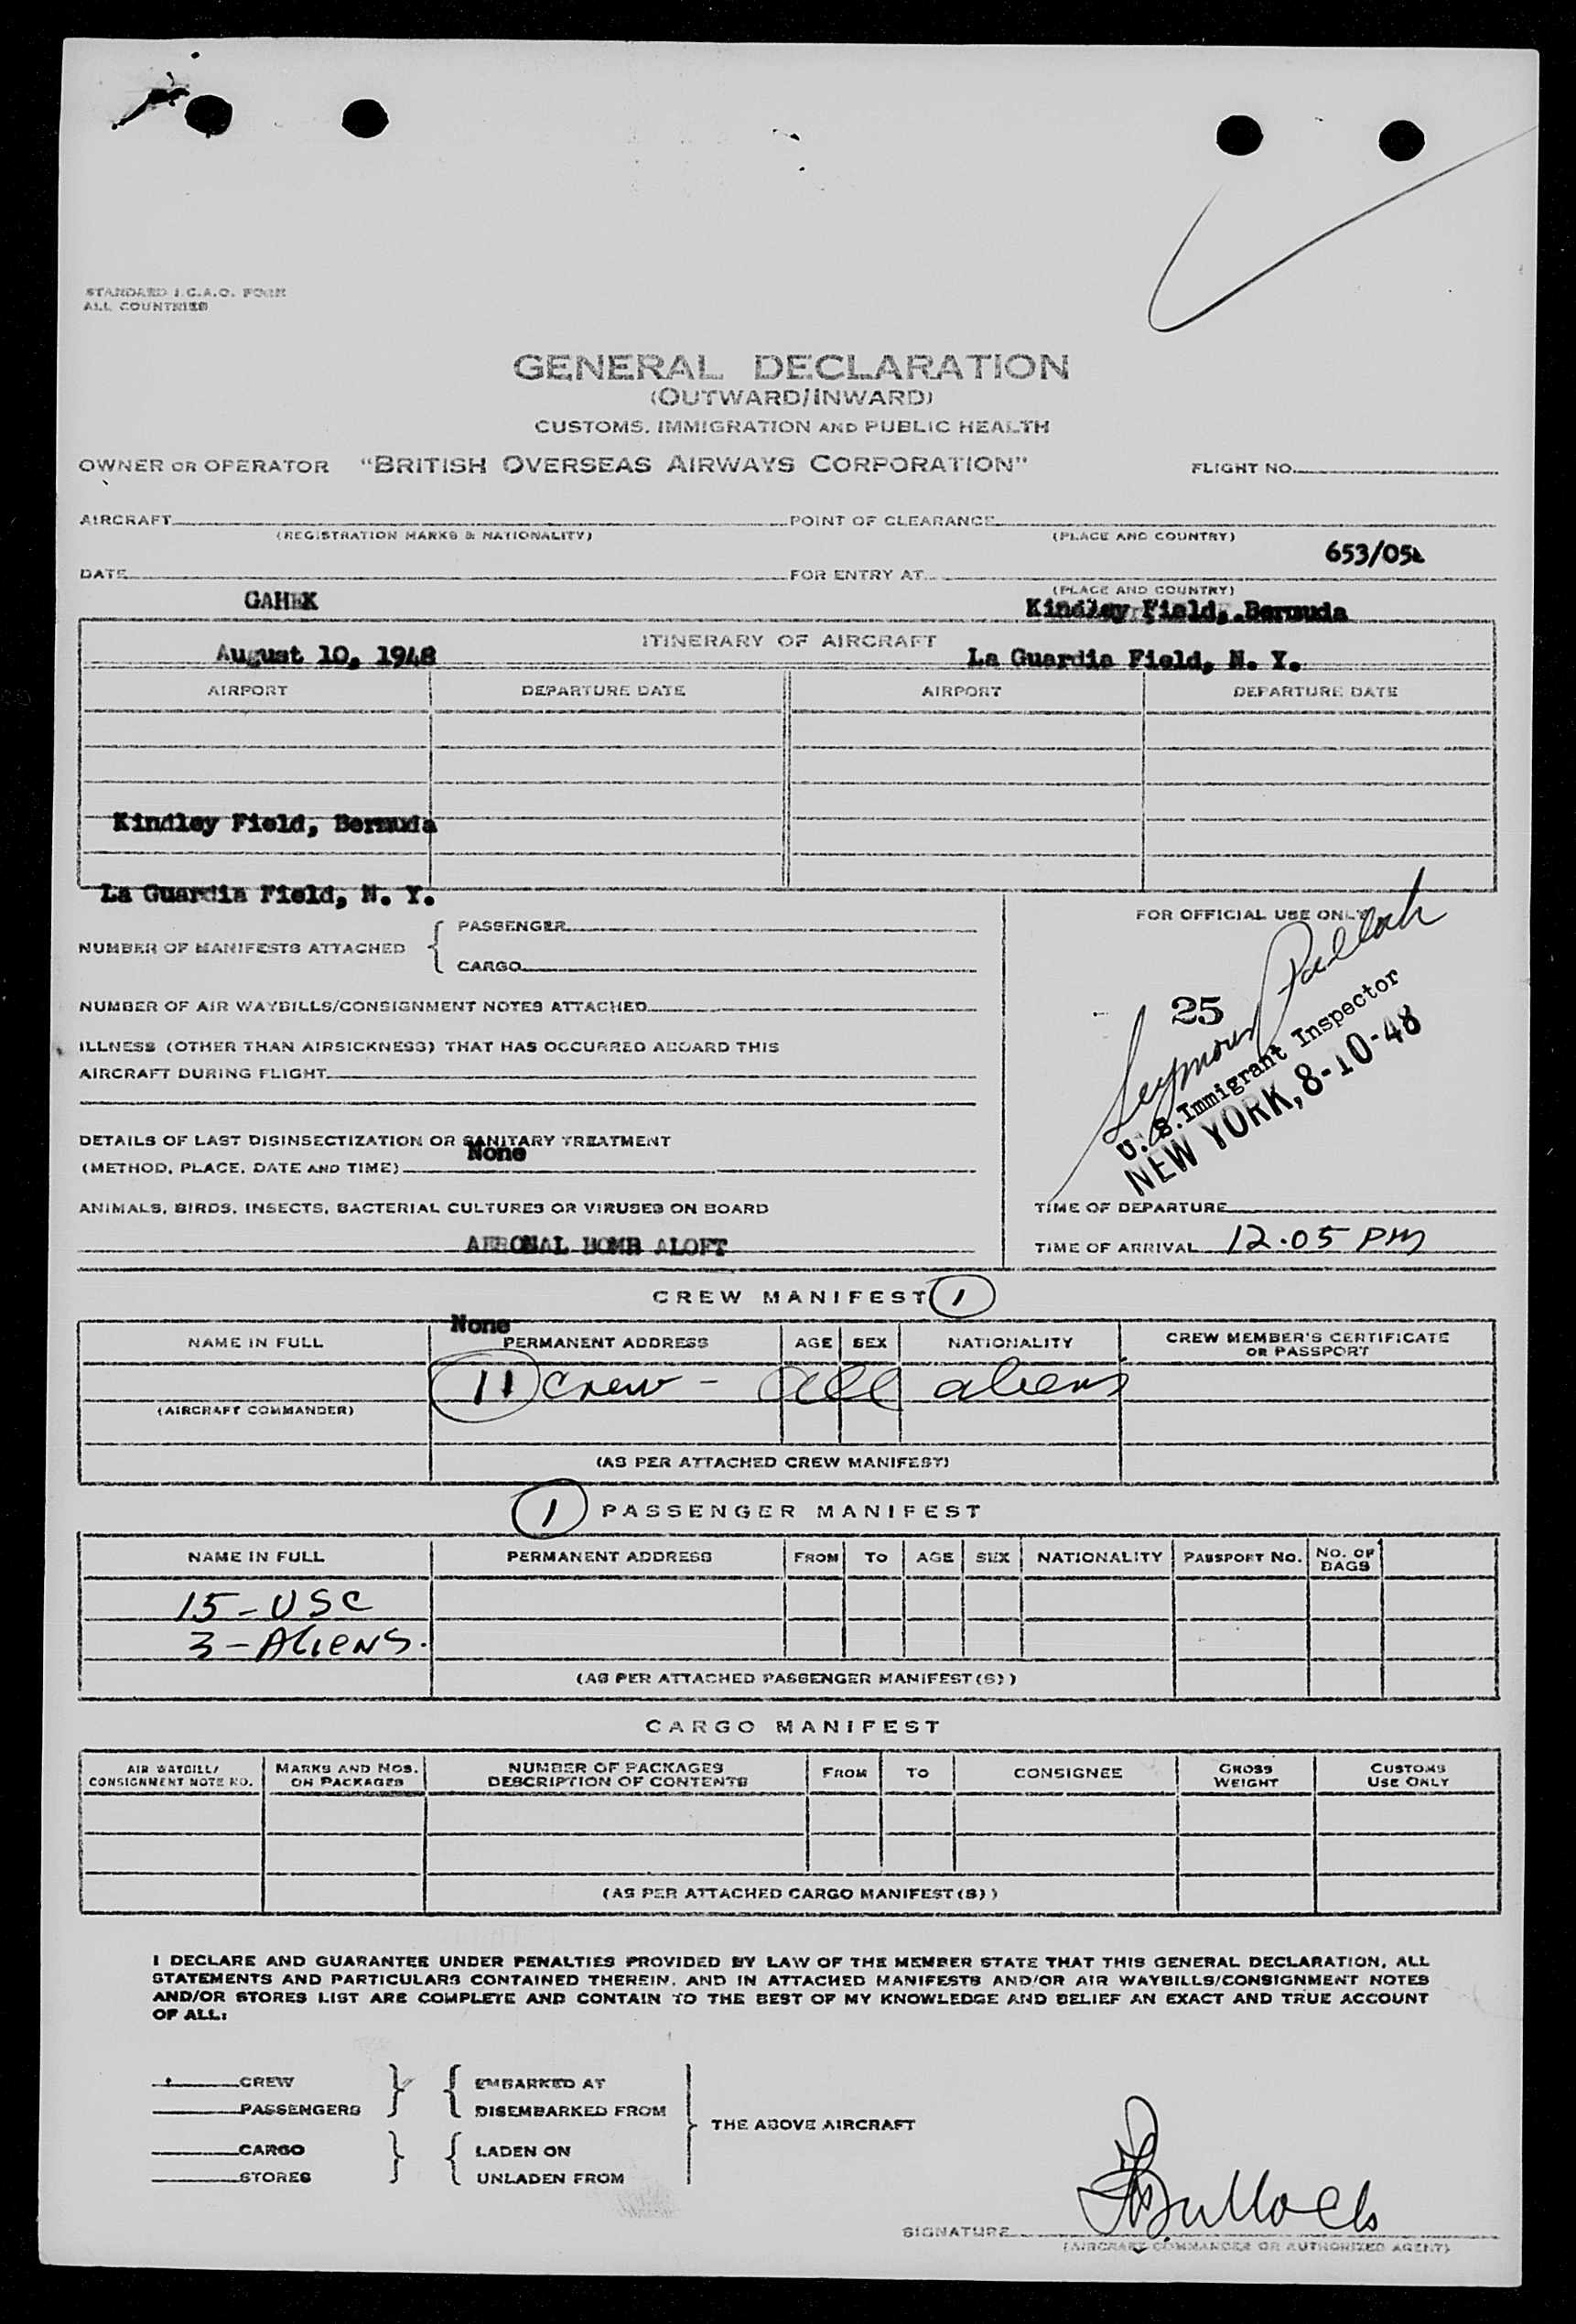 STANDARD I.C.A.O. FORM
ALL COUNTRIES
GENERAL DECLARATION
(OUTWARD/INWARD)
CUSTOMS, IMMIGRATION AND PUBLIC HEALTH
OWNER OR OPERATOR "BRITISH OVERSEAS AIRWAYS CORPORATION" FLIGHT NO.
AIRCRAFT POINT OF CLEARANCE
(REGISTRATION MARKS & NATIONALITY) (PLACE AND COUNTRY)
653/05
DATE FOR ENTRY AT
(PLACE AND COUNTRY)
GAHEK Kindley Field, Bermuda
ITINERARY OF AIRCRAFT
August 10, 1948 La Guardia Field, N. Y.
AIRPORT DEPARTURE DATE AIRPORT DEPARTURE DATE
Kindley Field, Bermuda
La Guardia Field, N. Y.
NUMBER OF MANIFESTS ATTACHED
PASSENGER
CARGO
NUMBER OF AIR WAYBILLS/CONSIGNMENT NOTES ATTACHED
ILLNESS (OTHER THAN AIRSICKNESS) THAT HAS OCCURRED ABOARD THIS
AIRCRAFT DURING FLIGHT
DETAILS OF LAST DISINSECTIZATION OR SANITARY TREATMENT
None
(METHOD, PLACE, DATE AND TIME)
ANIMALS, BIRDS, INSECTS, BACTERIAL CULTURES OR VIRUSES ON BOARD
AERONAL BOMB ALOFT
FOR OFFICIAL USE ONLY
25
Seymour Pallak
U. S. Immigrant Inspector
NEW YORK, 8-10-48
TIME OF DEPARTURE
TIME OF ARRIVAL 12.05 PM
CREW MANIFEST 1
None
NAME IN FULL PERMANENT ADDRESS AGE SEX NATIONALITY CREW MEMBER'S CERTIFICATE
OR PASSPORT
11 crew - all aliens
(AIRCRAFT COMMANDER)
(AS PER ATTACHED CREW MANIFEST)
1 PASSENGER MANIFEST
NAME IN FULL PERMANENT ADDRESS FROM TO AGE SEX NATIONALITY PASSPORT NO. NO. OF
BAGS
15-USC
3-ALIENS.
(AS PER ATTACHED PASSENGER MANIFEST(S))
CARGO MANIFEST
AIR WAYBILL/ MARKS AND NOS. NUMBER OF PACKAGES FROM TO CONSIGNEE GROSS CUSTOMS
CONSIGNMENT NOTE NO. ON PACKAGES DESCRIPTION OF CONTENTS WEIGHT USE ONLY
(AS PER ATTACHED CARGO MANIFEST(S))
I DECLARE AND GUARANTEE UNDER PENALTIES PROVIDED BY LAW OF THE MEMBER STATE THAT THIS GENERAL DECLARATION, ALL
STATEMENTS AND PARTICULARS CONTAINED THEREIN, AND IN ATTACHED MANIFESTS AND/OR AIR WAYBILLS/CONSIGNMENT NOTES
AND/OR STORES LIST ARE COMPLETE AND CONTAIN TO THE BEST OF MY KNOWLEDGE AND BELIEF AN EXACT AND TRUE ACCOUNT
OF ALL:
CREW EMBARKED AT
PASSENGERS DISEMBARKED FROM
THE ABOVE AIRCRAFT
CARGO LADEN ON
STORES UNLADEN FROM
SIGNATURE Bullock
(AIRCRAFT COMMANDER OR AUTHORIZED AGENT)